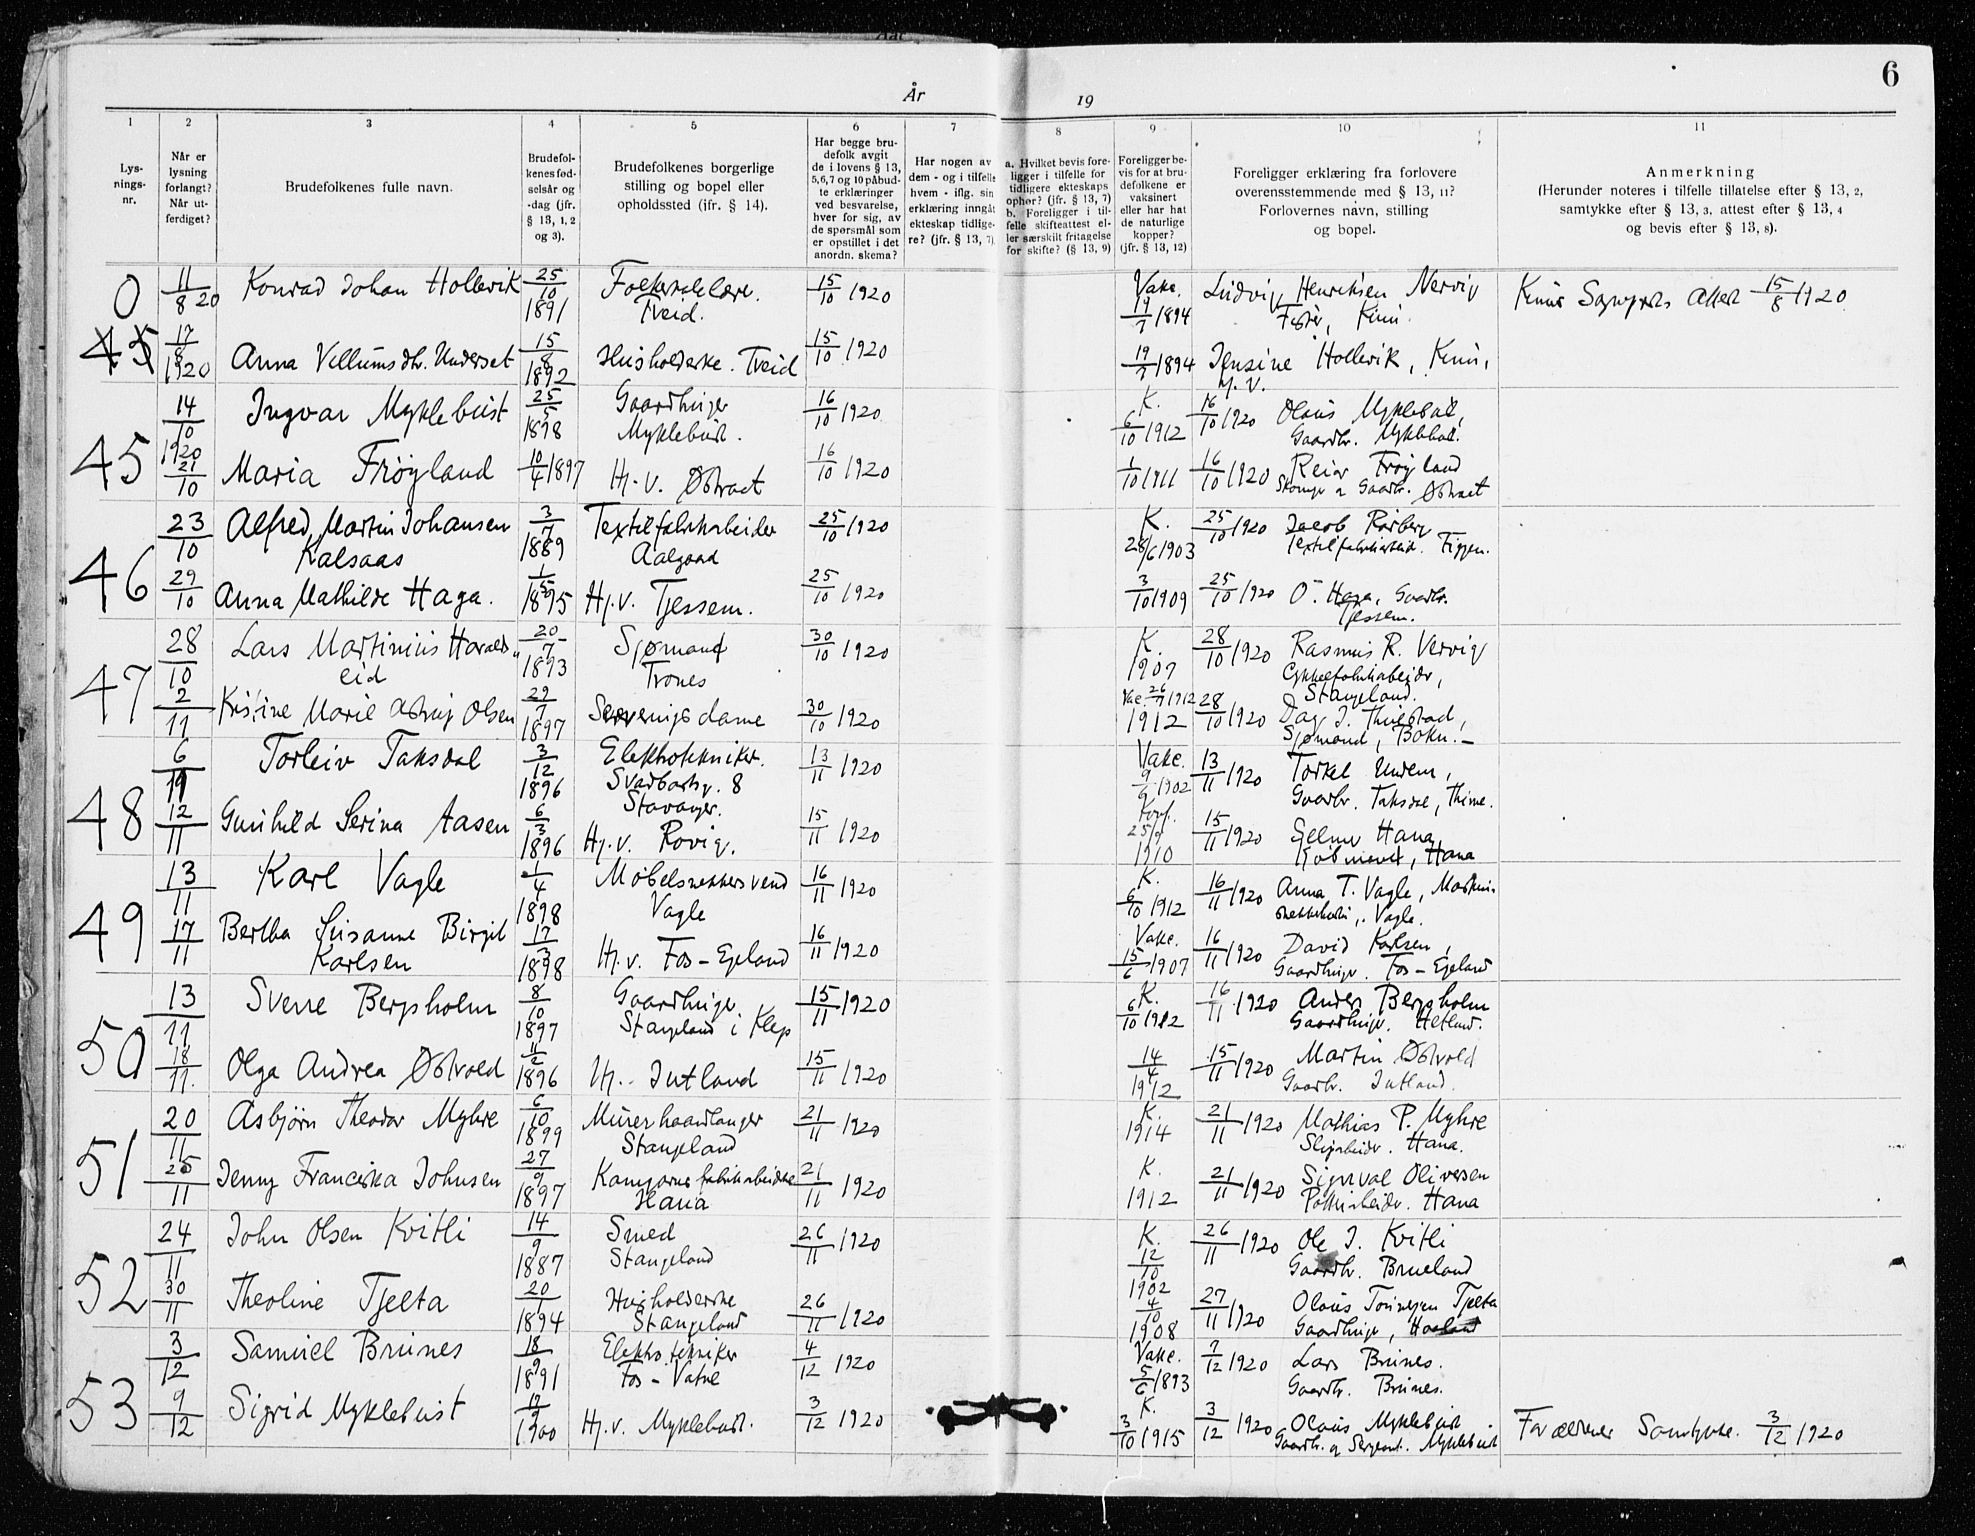 6
År
19
1
2
3
4
5
6
7
8
9
10
11
Lys-
nings-
nr.
Når er
lysning
forlangt?
Når ut-
ferdiget?
Brudefolkenes fulle navn.
Brudefol-
kenes fød-
selsår og
-dag (jfr.
§ 13, 1, 2
og 3).
Brudefolkenes borgerlige
stilling og bopel eller
opholdssted (jfr. § 14).
Har begge bru-
defolk avgit
de i lovens § 13,
5,6,7 og 10 påbud-
te erklæringer
ved besvarelse,
hver for sig, av
de spørsmål som
er opstillet i det
anordn. skema?
Har nogen av
dem - og i tilfelle
hvem - iflg. sin
erklæring inngått
ekteskap tidlige-
re? (jfr. § 13, 7)
a. Hvilket bevis fore-
ligger i tilfelle for
tidligere ekteskaps
ophør? (jfr. § 13, 7)
b. Foreligger i til-
felle skifteattest el-
ler særskilt fritagelse
for skifte? (§ 13, 9)
Foreligger be-
vis for at bru-
defolkene er
vaksinert
eller har hat
de naturlige
kopper?
(jfr. § 13, 12)
Foreligger erklæring fra forlovere
overensstemmende med § 13, 11?
Forlovernes navn, stilling
og bopel.
Anmerkning
(Herunder noteres i tilfelle tillatelse efter § 13, 2,
samtykke efter § 13, 3, attest efter § 13, 4
og bevis efter § 13, 8).
0 11/8 20 Konrad Johan Hollevik 25/10 1891 15/10 1920 Vakc. 19/7 1894 Ludvig Henriksen Nervig
Tveid. Fisker, Kinn. 15/8 1920
45 17/8 1920 Anna Villumsdtr. Underset 15/8 1892 Husholderske. Tveid 15/10 1920 19/7 1894 Jensine Hollevik, Kinn,
14/10 1920 Ingvar Myklebust 25/5 1898 Gaardbruger 16/10 1920 K. 6/10 1912 16/10 1920 Olaus Myklebust,
Myklebust. Gaardbr. Myklebust.
45 21/10 Maria Frøyland 10/4 1897 Hj. v. Østraat 16/10 1920 1/10 1911 16/10 1920 Reier Frøyland
Gaardbr. Østraat
23/10 Alfred Martin Johansen 3/7 1889 Textilfabrikarbeider 25/10 1920 K. 28/6 1903 25/10 1920 Jacob Rørberg
Kalsaas Aalgaard Textilfabrikarbeid. Figgen.
46 29/10 Anna Mathilde Haga. 1/5 1895 Hj. v. Tjessem. 25/10 1920 3/10 1909 25/10 1920 O. Haga, Gaardbr.
Tjessem.
28/10 Lars Martinius Harald- 20/7 1893 Sjømand 30/10 1920 K. 1907 28/10 1920 Rasmus R. Vervig
eid Trones Cykkelfabrikarbeider,
Stangeland.
47 2/11 Kristine Marie Astrup Olsen 29/7 1897 Serveringsdame 30/10 1920 Vac. 26/7 1912 1912 28/10 1920 Dag J. Thuestad,
Sjømand, Bokn.
6/11 Torleiv Taksdal 3/12 1896 Elektrotekniker. 13/11 1920 Vakc. 9/9 1902 13/11 1920 Torkel Undem,
Svadbergv. 8 Gaardbr. Taksdal, Thime.
Stavanger.
48 12/11 Gunhild Serina Aasen 6/3 1896 Hj. v. Rovig. 15/11 1920 25/9 1910 15/11 1920 Hana
Kjøbmand, Hana
13/11 Karl Vagle 1/4 1898 Møbelsnekkersvend 16/11 1920 K. 6/10 1912 16/11 1920 Anna T. Vagle,
Vagle Vagle.
49 17/11 Bertha Susanne Birgit 17/3 1898 Hj. v. Fos-Egeland 16/11 1920 Vakc. 15/6 1907 16/11 1920 David Karlsen,
Karlsen Gaardbruger. Fos-Egeland
13/11 Sverre Bergsholm 8/10 1897 Gaardbruger 15/11 1920 K. 6/10 1912 16/11 1920 Anders Bergsholm
Stangeland i Klep Gaardbruger. Hetland.
50 18/11 Olga Andrea Østvold 11/2 1896 Hj. - Jutland 15/11 1920 14/4 1912 15/11 1920 Martin Østvold
Gaardbr. Jutland.
20/11 Asbjørn Theodor Myhre 6/10 1899 Murerhaandlanger 21/11 1920 K. 1914 21/11 1920 Mathias P. Myhre
Stangeland Sliparbeider. Hana.
51 25/11 Jenny Franciska Johnsen 27/9 1897 Kamgarnsfabrikarbeiderske 21/11 1920 K. 1912 21/11 1920 Sigurval Oliversen
Hana Hana
24/11 John Olsen Kvitli 14/9 1887 Smed 26/11 1920 K. 12/10 1902 26/11 1920 Ole J. Kvitli
Stangeland Gaardbr. Brueland
52 30/11 Theoline Tjelta 20/1 1894 Husholderske 26/11 1920 4/10 1908 27/11 1920 Olaus Tønnesen Tjelta
Stangeland Gaardbruger, Haaland
3/12 Samuel Brunes 18/9 1891 Elektrotekniker 4/12 1920 Vakc. 5/6 1893 7/12 1920 Lars Brunes.
Fos-Vatne Gaardbr. Brunes.
53 9/12 Sigrid Myklebust 1900 Hj. v. Myklebust. 3/12 1920 K. 3/10 1915 3/12 1920 Olaus Myklebust
Gaardbr. og Sergeant. Myklebust Forældrenes Samtykke. 3/12 1920